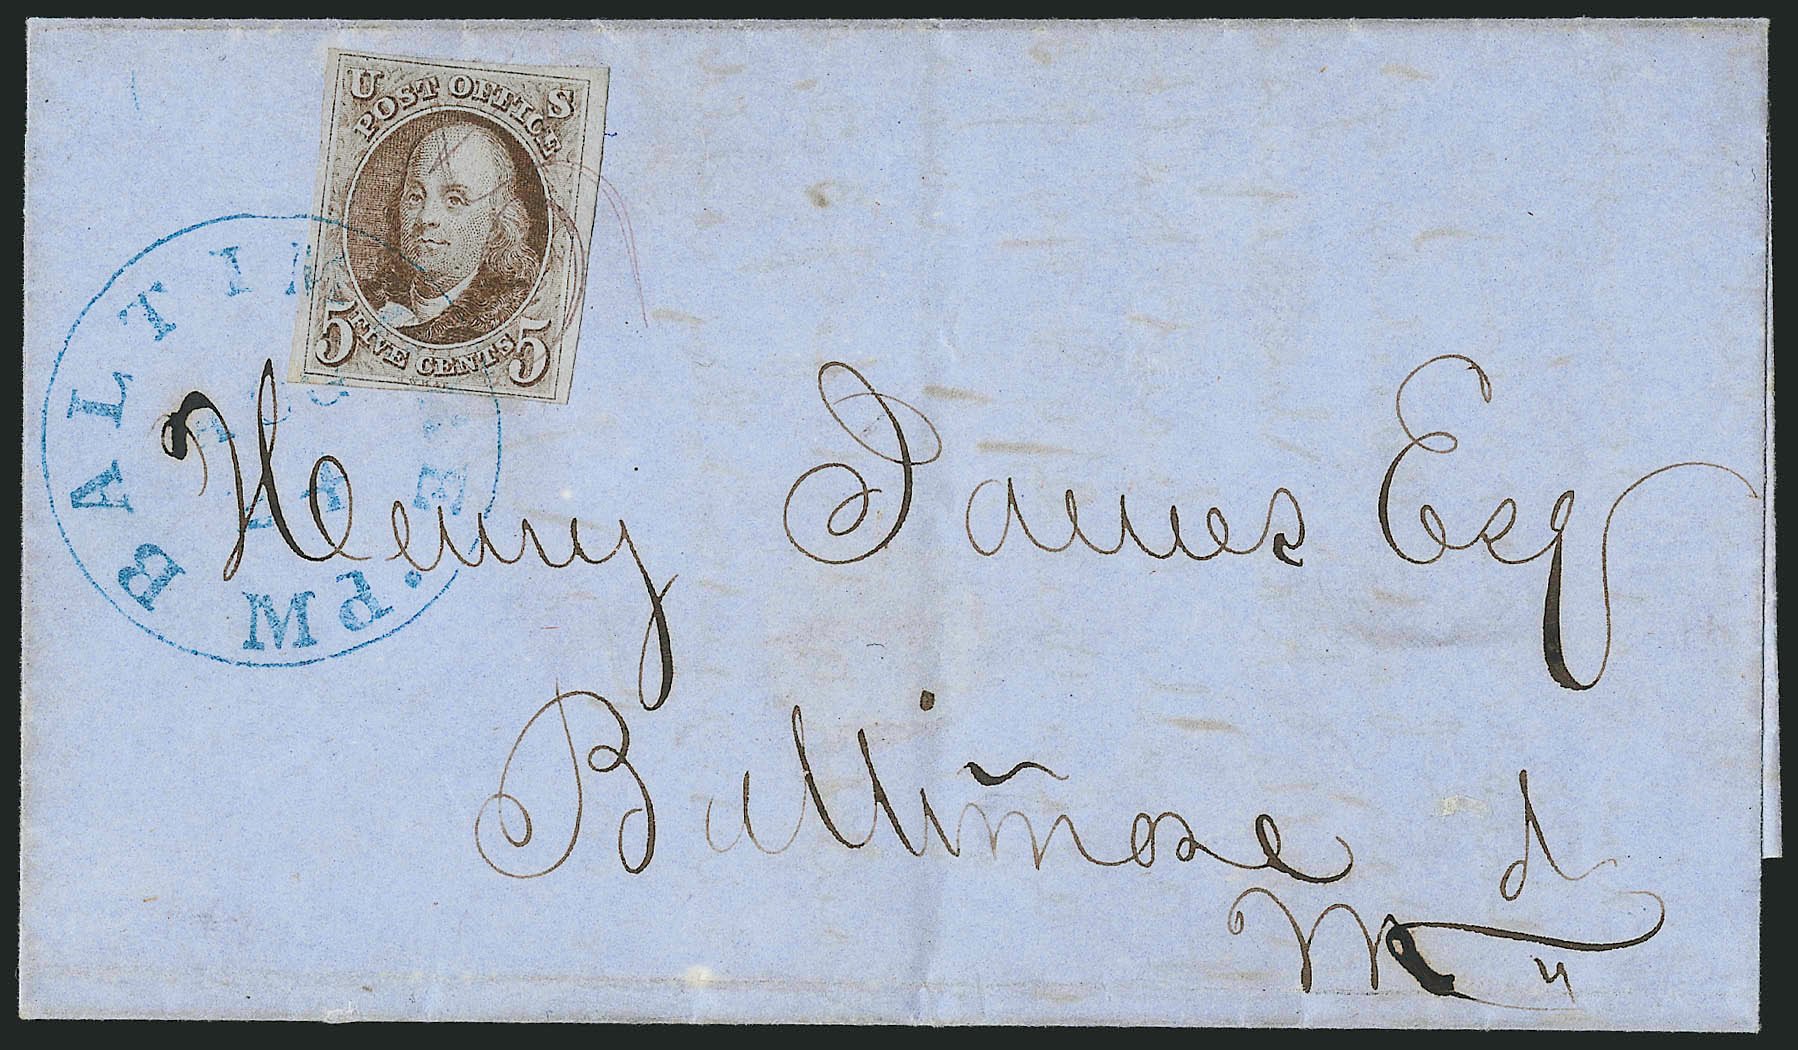 U S
POST OFFICE
5 FIVE CENTS 5
BALTIM
E
Md.
Henry James Esq
Baltimore
Md